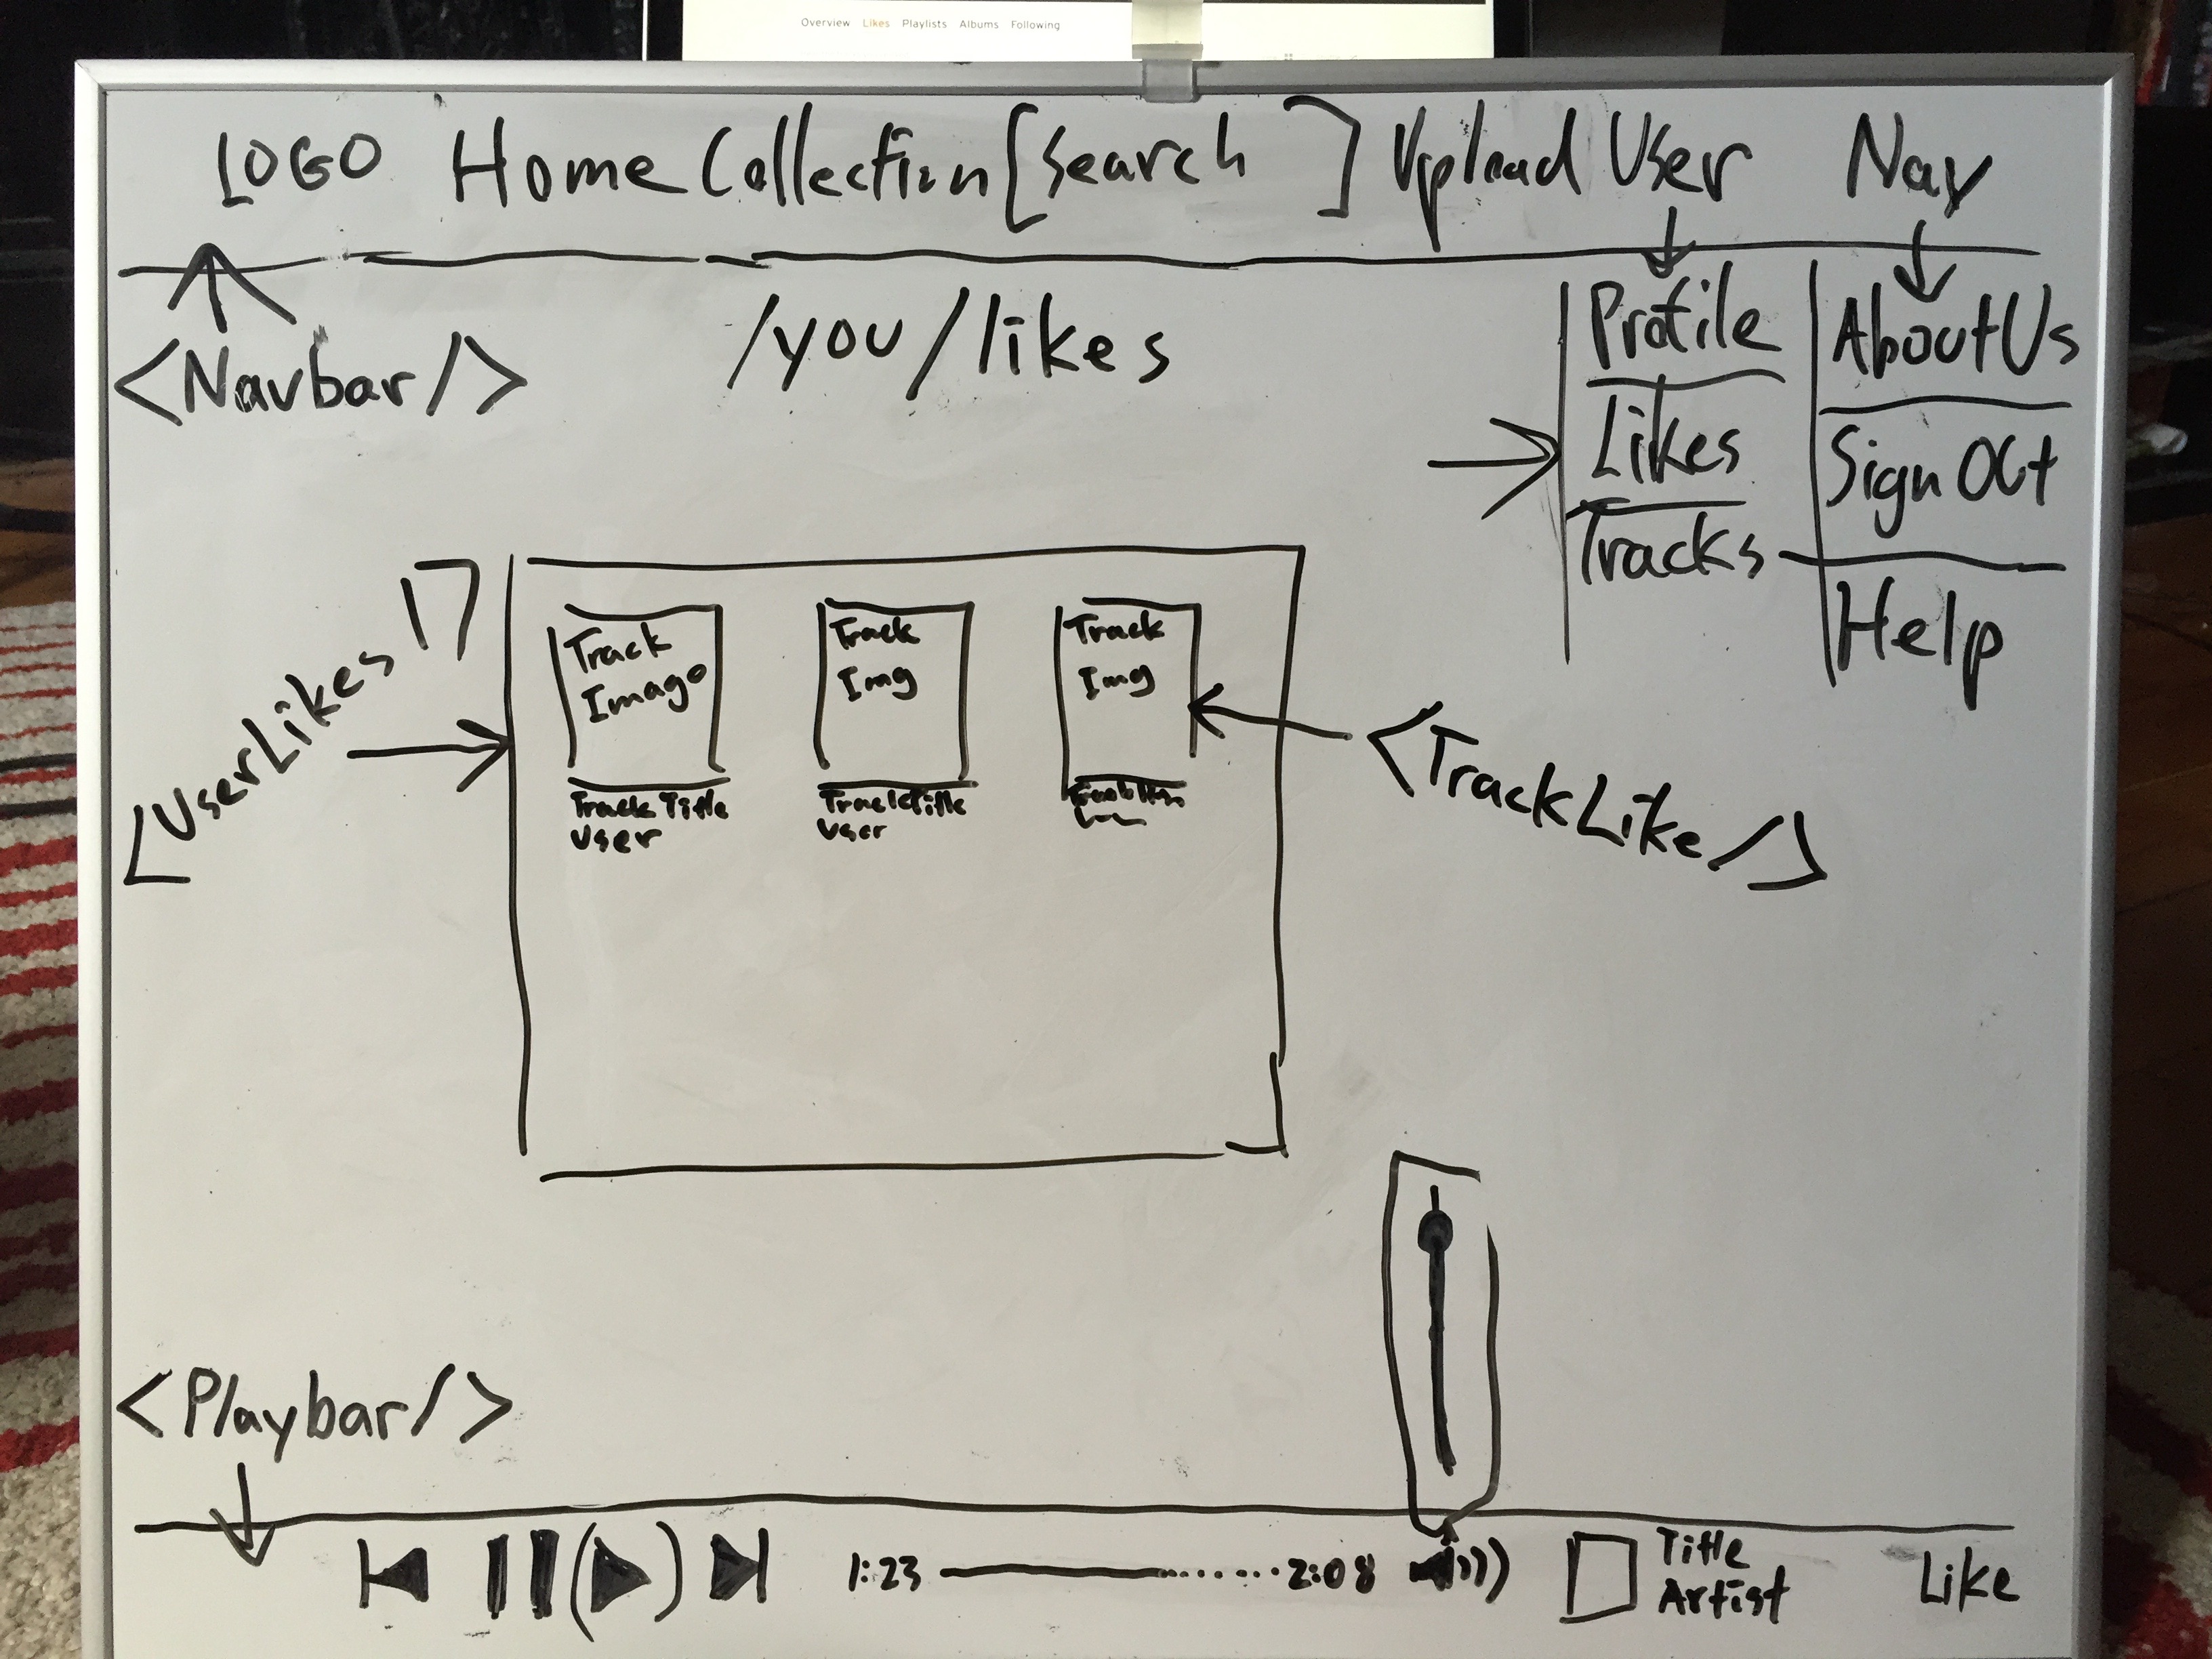 Overview Likes Playlists Albums Following
LOGO Home Collection [Search ] Upload User Nav
<Navbar/>
/you/likes
Profile
Likes
Tracks
About Us
Sign Out
Help
[UserLikes]
Track
Image
Track Title
User
Track
Img
Track Title
User
Track
Img
<TrackLike/>
<Playbar/>
1:23
2:08
Title
Artist
Like